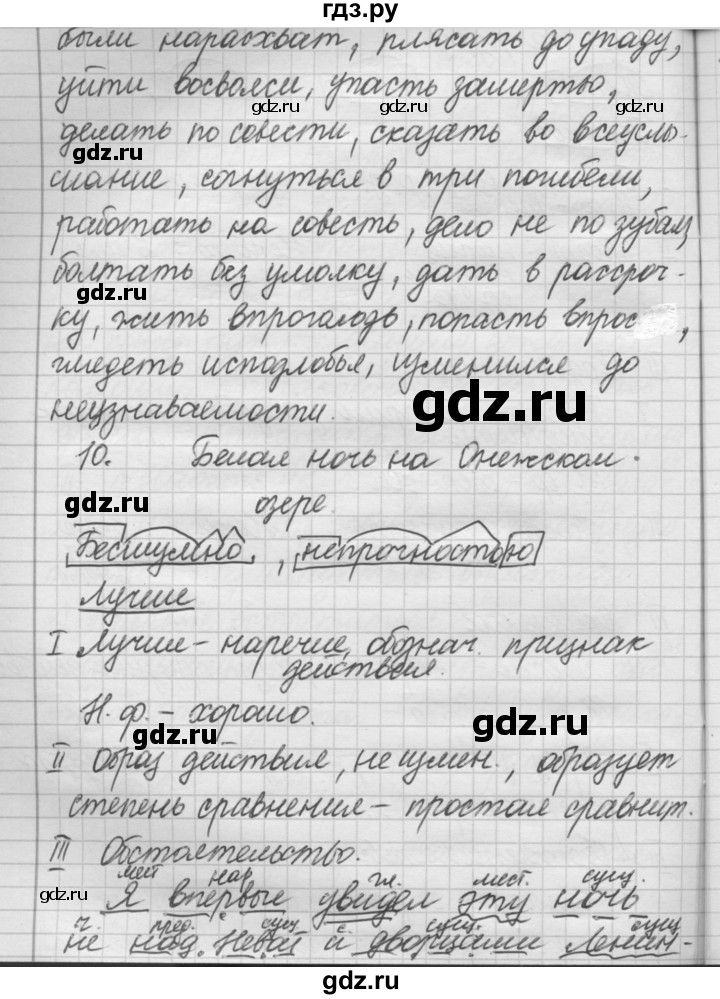 гдз.ру
были нарасхват, плясать до упаду,
уйти восвояси, упасть замертво,
gdz.ru gdz.ru gdz.ru
делать по совести, сказать во всеуслы-
gdz.ru
шание, согнуться в три погибели,
работать на совесть, дело не по зубам,
болтать без умолку, дать в рассроч-
gdz.ru
ку, жить впроголодь, попасть впрос
глядеть исподлобья, изменился до
gdz.ru
неузнаваемости.
10. Белая ночь на Онежском
gdz.ru
озере.
Бесшумно, непрочностью
Лучше
I Лучше – наречие, обознач. признак
действия.
Н. ф. – хорошо.
gdz.ru gdz.ru
II Образ действия, неизмен., образует
степень сравнения – простая сравнит.
III Обстоятельство.
мест. нар. гл. мест. сущ.
gdz.ru gdz.ru
Я впервые увидел эту ночь
ч. пред. сущ. сущ. сущ.
не над Невой и дворцами Ленин-
gdz.ru gdz.ru gdz.ru